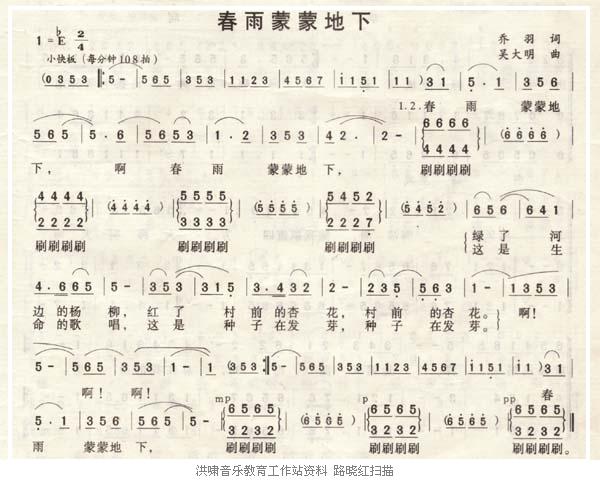 春雨蒙蒙地下
1=♭E 2/4
乔羽 词
小快板(每分钟108拍)
吴大明 曲
(0353 ‖: 5- | 565 | 353 | 1123 | 4567 | i151 | 11) | 31 | 5·1 | 353
1.2.春 雨 蒙蒙地
565 | 5·6 | 5653 | 1·2 | 353 | 42· | 2- | 6666 | (6666)
4444
下, 啊 春 雨 蒙蒙地 下, 刷刷刷刷
4444 | (4444) | 5555 | (5555) | 5452 | (5452) | 656 | 641
2222 3333 2227
刷刷刷刷 刷刷刷刷 刷刷刷刷 绿了 河
这是 生
4·665 | 5- | 353 | 315 | 3·432 | 2- | 2·123 | 563 | 1- | 13
边的杨 柳, 红了 村 前的杏 花, 村前 的杏 花。 啊!
命的歌 唱, 这是 种 子在发 芽, 种子 在发 芽。
5- | 565 | 353 | 1- | 1- | (353 :‖ 5- | 565 | 353 | 1123 | 4567 | i151 | 11) | 31
啊! 啊! 春
mp p pp
5·1 | 353 | 565 | 5- | 6565 | (6565) | 6565 | (6565) | 6565
3232 3232 3232
雨 蒙蒙地 下, 刷刷刷刷 刷刷刷刷 刷刷刷刷。
洪啸音乐教育工作站资料 路晓红扫描